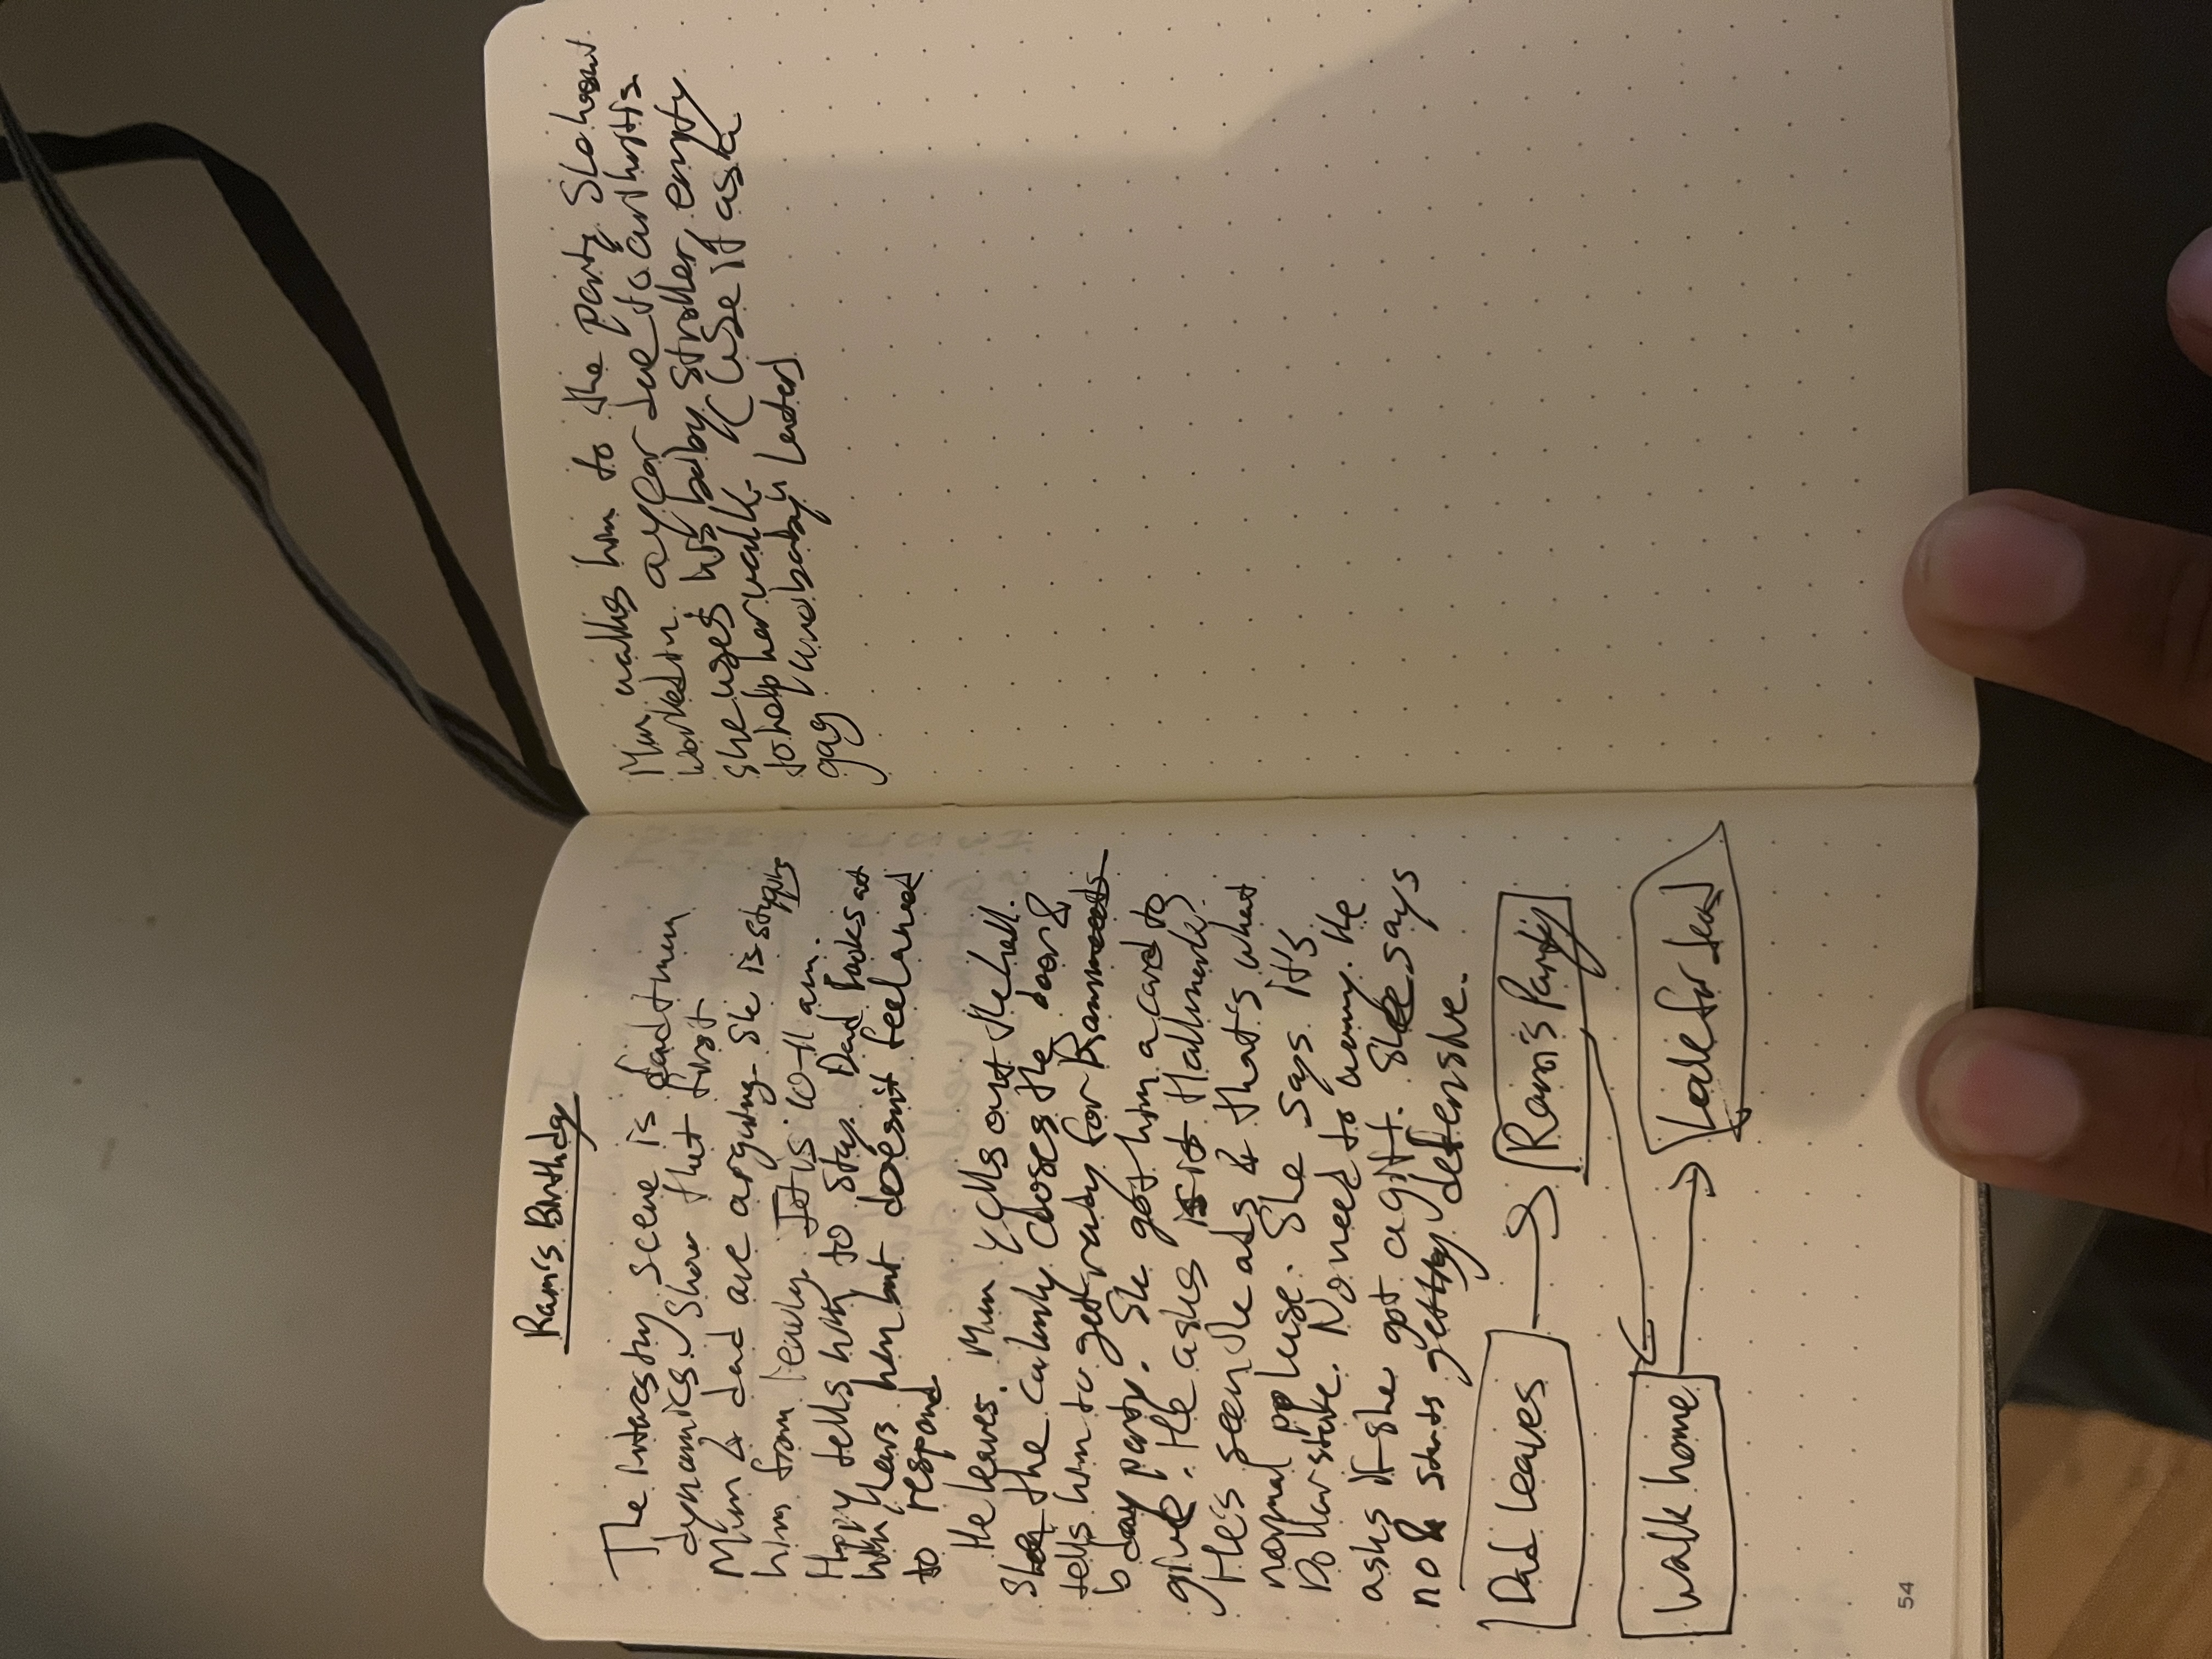 Ram's Birthday
The interesting scene is dad + mum
dynamics. Show that first
Mum & dad are arguing. She is stopping
him from leaving. It is 10-11 am.
Happy tells him to stay. Dad looks at
him, hears him but doesn't feel a need
to respond
He leaves. Mum yells out the hall.
She the calmly closes the door &
tells him to get ready for Ram
bday party. She got him a card to
give. He asks is it Hallmark?
He's seen the ads & that's what
normal ppl use. She says it's
Dollar store. No need to worry. He
asks if she got a gift. She says
no & starts getting defensive.
Dad leaves
Ram's Party
Walk home
Look for dad
Mum walks him to the party. She hasn't
worked in a year due to arthritis
she uses his baby stroller, empty
to help her walk. (Use it as a
gag "no baby" later)
54